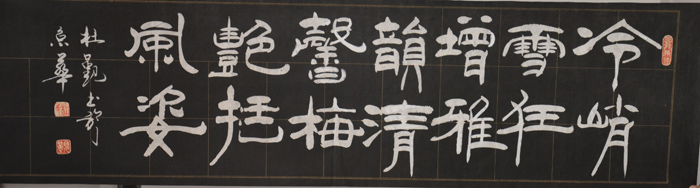 冷峭
雪狂
增雅
韻清
馨梅
艷挹
風姿
杜
京華